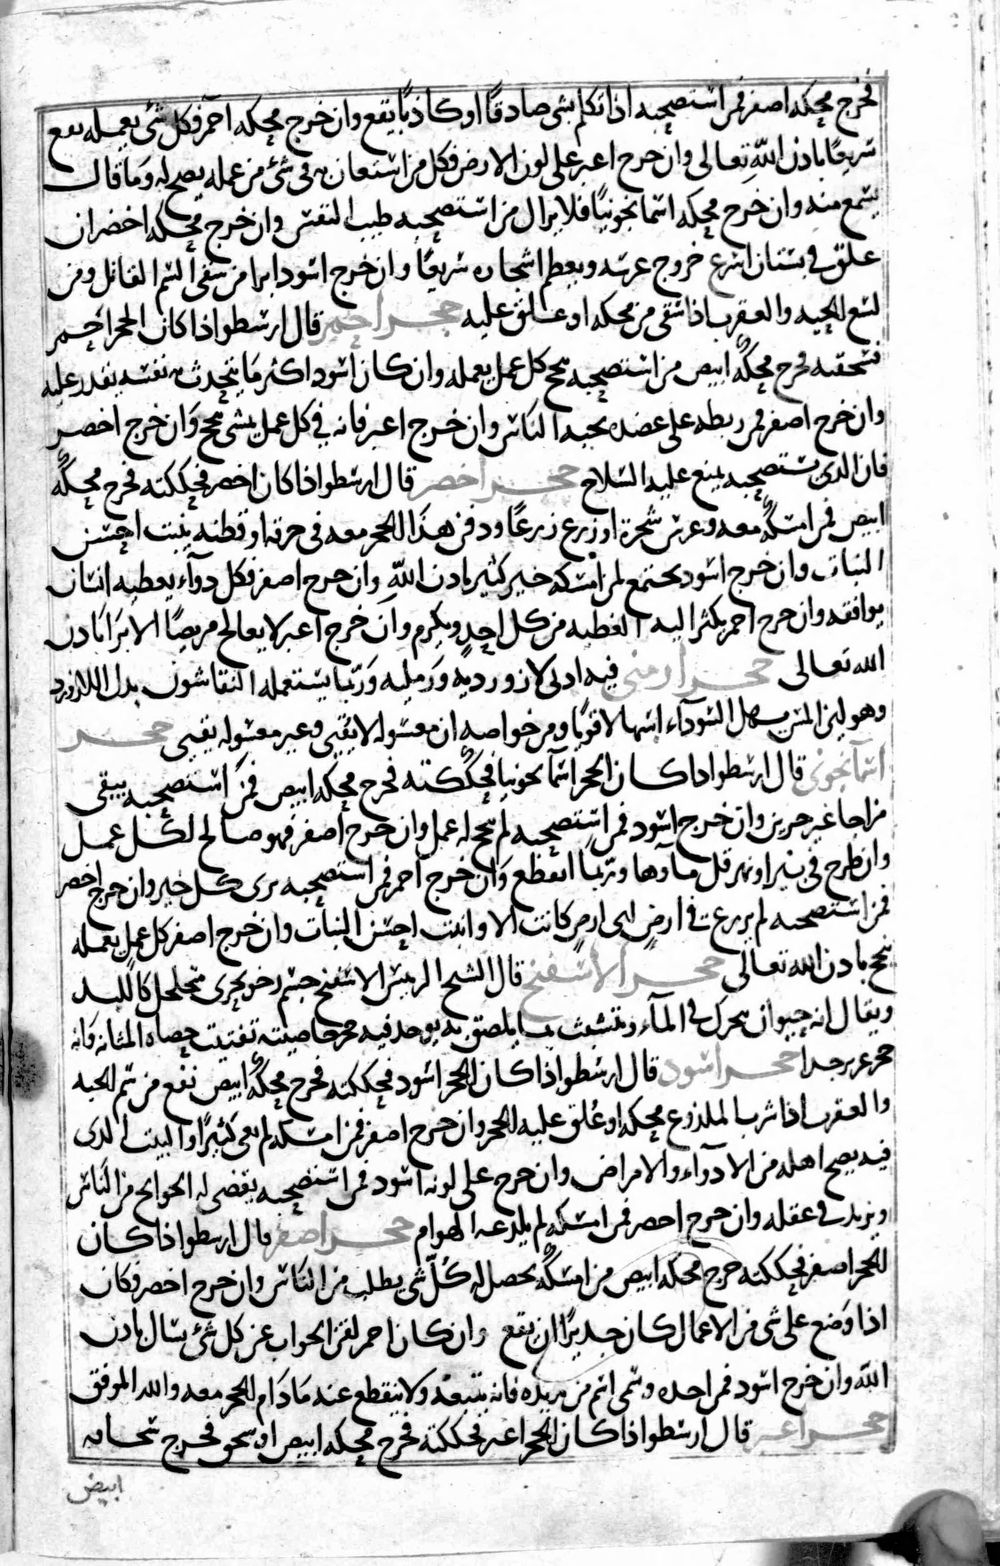 فخرج محكه اصفر فمن استصحبه اذا تكلم بشي صادقًا او كاذبًا يقع وان خرج محكه احمر فكل شي يعمله يقع
سريعًا باذن الله تعالى وان خرج اغبر على لون الارض فكل من استعان به في شئ من عمله يصح له وما قال
يسمع منه وان خرج محكه اسمانجونيًا فلا يزال من استصحبه طيب النفس وان خرج محكه اخضر ان
علق في بستان اسرع خروج غرسه ويعظم اشجاره سريعًا وان خرج اسود ابرا من سقى السم القاتل ومن
لسع الحيه والعقرب اذا سقى من محكه او علق عليه حجر احمر قال ارسطو اذا كان الحجر احمر
فسحقته فخرج محكه ابيض من استصحبه نجح كل عمل يعمله وان كان اسود اكثر ما يتحدث به نفسه يقدر عليه
وان خرج اصفر فمن ربطه على عضده يحبه الناس وان خرج اغبر فانه في كل عمل يمشي نجح وان خرج اخضر
فان الذى يستصحبه يمنع عليه السلاح حجر اخضر قال ارسطو اذا كان اخضر فحككته فخرج محكه
ابيض فمن امسكه معه وغرس شجرة او زرع زرعًا ودفن هذا الحجر معه في خرقة او قطنه ينبت احسن
النبات وان خرج اسود يجتمع لمن امسكه خير كثير باذن الله وان خرج اصفر فكل دوآء يعطيه انسان
يوافقه وان خرج احمر يكثر اليه العطيه من كل احد ويكرم وان خرج اغبر لا يعالج مريضًا الا برا باذن
الله تعالى حجر ارمنى فيه ادنى لازورديه ورمليه وربما يستعمله النقاشون بدل اللازورد
وهو لين المس يسهل السودآء اسهالا قويا ومن خواصه ان مغسوله لا يقيي وغير مغسوله يقيى حجر
اسمانجونى قال ارسطو اذا كان الحجر اسمانجونيا فحككته فخرج محكه ابيض فمن استصحبه يبقى
مزاجا غير حزين وان خرج اسود فمن استصحبه لم ينجح له عمل وان خرج اصفر فهو صالح لكل عمل
وان طرح في بير او نهر قل ماؤها وربما انقطع وان خرج احمر فمن استصحبه يرى كل خير وان خرج اخضر
فمن استصحبه لم يزرع في ارض اى ارض كانت الا وانبتت احسن النبات وان خرج اصفر كل عمل يعمله
نجح باذن الله تعالى حجر الاسفنج قال الشيخ الرييس الاسفنج جسم رخو بحرى متخلخل كاللبد
ويقال انه حيوان يتحرك في المآء ويتشبث بما يلتصق به يوجد فيه حجر خاصيته تفتيت حصاه المثانه فانه
حجر عزيز جدا حجر اسود قال ارسطو اذا كان الحجر اسود فحككته فخرج محكه ابيض نفع من سم الحيه
والعقرب اذا شرب الملدوغ محكه او علق عليه الحجر وان خرج اصفر فمن امسكه لم يعى كثيرًا والبيت الذى
فيه يصح اهله من الادوآء والامراض وان خرج على لونه اسود فمن استصحبه يقضى له الحوايج من الناس
ويزيد في عقله وان خرج اخضر فمن امسكه لم يلدغه الهوام حجر اصفر قال ارسطو اذا كان
الحجر اصفر فحككته خرج محكه ابيض من امسكه يحصل له كل شي يطلب من الناس وان خرج اخضر فكان
اذا وضع على شي من الاعمال كان جديرًا ان يقع وان كان احمر لقن الجواب عن كل شئ يسال باذن
الله وان خرج اسود فمن اخذه وسمى اسم من يريده فانه يتبعه ولا ينقطع عنه ما دام الحجر معه والله الموفق
حجر اغبر قال ارسطو اذا كان الحجر اغبر فحككته فخرج محكه ابيض فخرج سحابه
ابيض